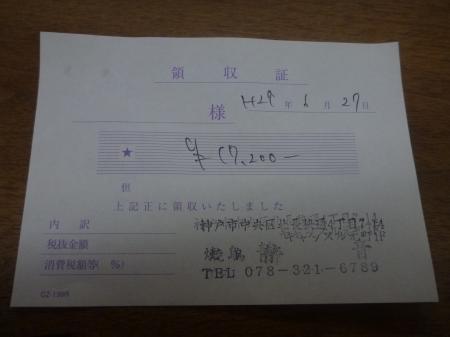 領収証
H29年6月27日
様
★ ¥17,200-
但
上記正に領収いたしました
内訳
税抜金額
消費税額等( %)
神戸市中央区
TEL 078-321-6789